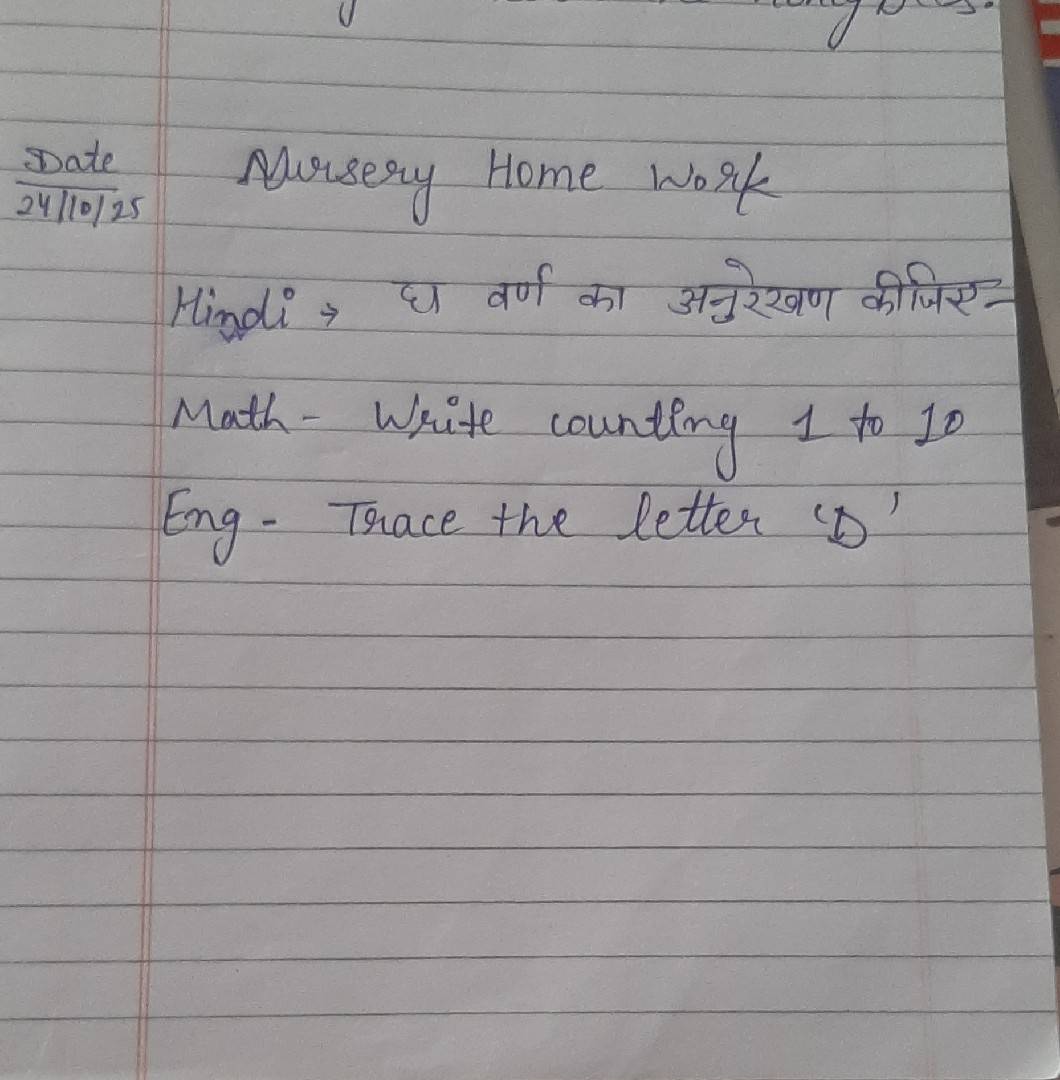 Date
24/10/25
Nursery Home Work
Hindi → घ वर्ण का अनुरेखण कीजिए-
Math - Write counting 1 to 10
Eng - Trace the letter 'D'